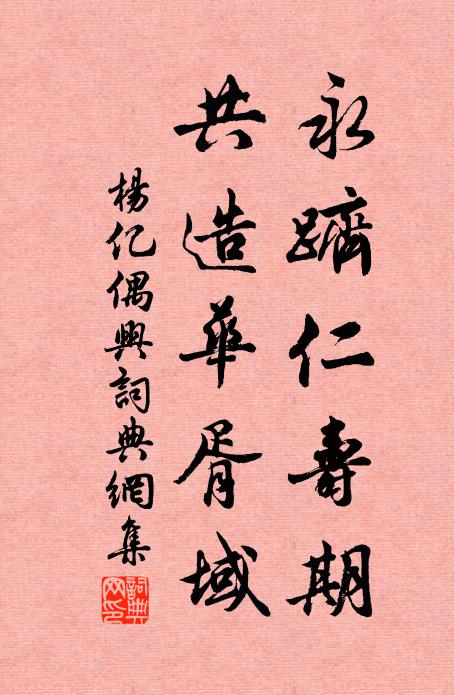 永躋仁壽期
共造華胥域
楊億偶興詞典網集
詞典網印